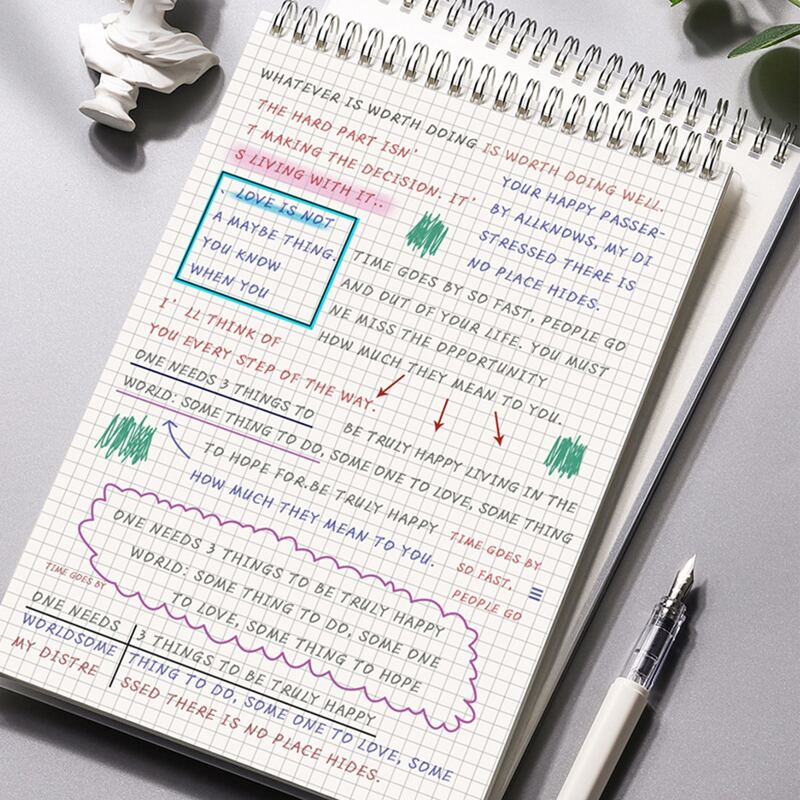 WHATEVER IS WORTH DOING IS WORTH DOING WELL.
THE HARD PART ISN'
T MAKING THE DECISION. IT'
S LIVING WITH IT..
YOUR HAPPY PASSER-
BY ALLKNOWS, MY DI
STRESSED THERE IS
NO PLACE HIDES.
、LOVE IS NOT
A MAYBE THING.
YOU KNOW
WHEN YOU
TIME GOES BY SO FAST, PEOPLE GO
AND OUT OF YOUR LIFE. YOU MUST
NE MISS THE OPPORTUNITY
HOW MUCH THEY MEAN TO YOU.
I' LL THINK OF
YOU EVERY STEP OF THE WAY.
ONE NEEDS 3 THINGS TO
BE TRULY HAPPY LIVING IN THE
WORLD: SOME THING TO DO, SOME ONE TO LOVE, SOME THING
TO HOPE FOR.BE TRULY HAPPY
HOW MUCH THEY MEAN TO YOU.
ONE NEEDS 3 THINGS TO BE TRULY HAPPY
WORLD: SOME THING TO DO, SOME ONE
TO LOVE, SOME THING TO HOPE
TIME GOES BY
SO FAST,
PEOPLE GO
TIME GOES BY
ONE NEEDS 3 THINGS TO BE TRULY HAPPY
WORLDSOME THING TO DO, SOME ONE TO LOVE, SOME
MY DISTRE SSED THERE IS NO PLACE HIDES.